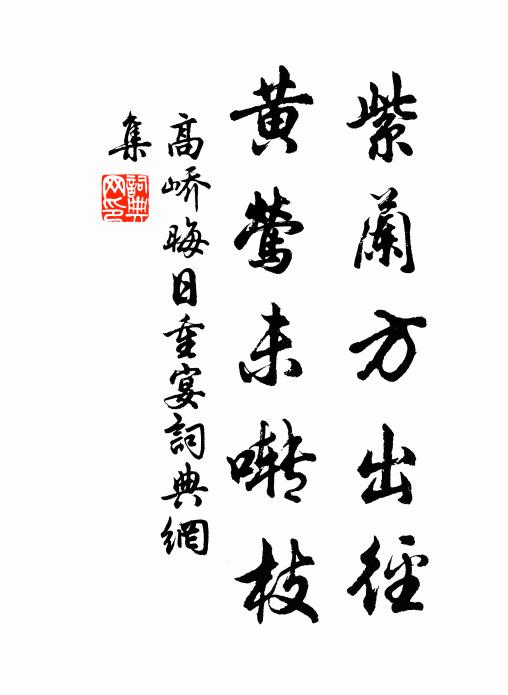 紫蘭方出徑
黄鶯未囀枝
高嶠晦日重宴詞典網
集
詞典網印